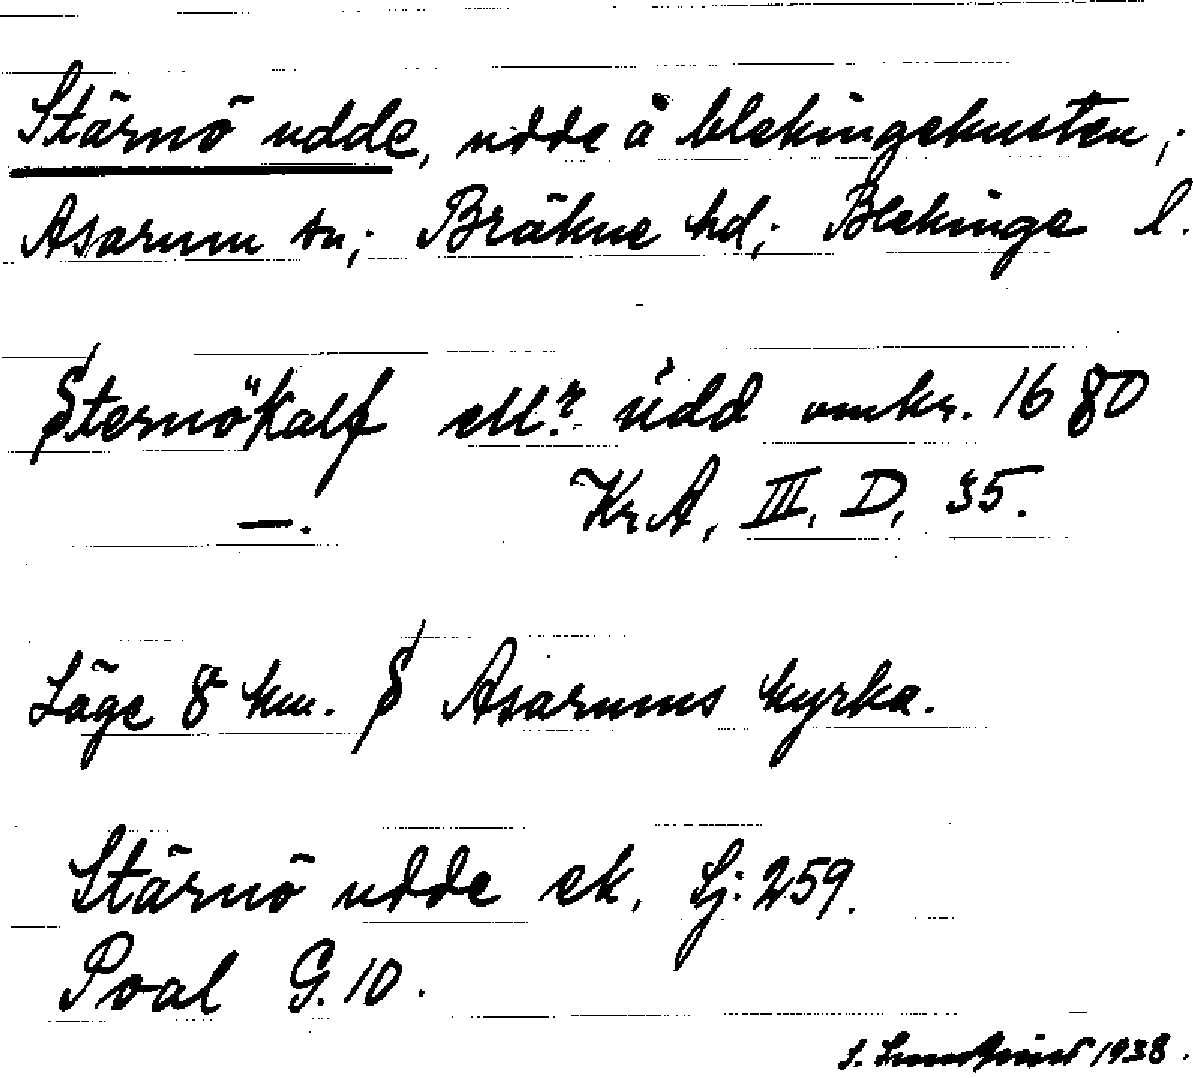 Stärnö udde, udde å blekingekusten;
Asarum sn; Bräkne hd; Blekinge l.
Sternö Kalf ell? udd omkr. 1680
—. Kr.A, III, D, 35.
Läge 8 km. S Asarums kyrka.
Stärnö udde ek. Lj. 259.
Poal G. 10.
S. 1938.